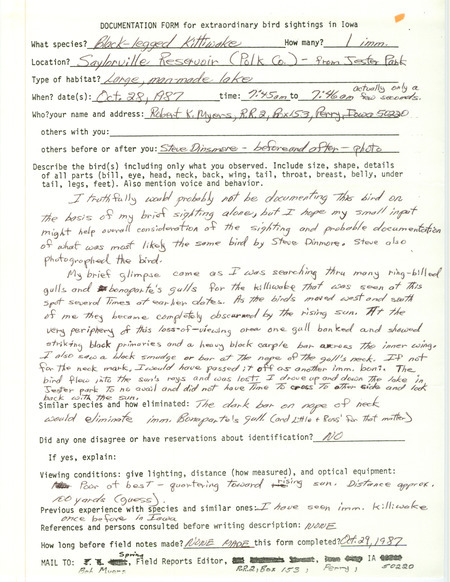 DOCUMENTATION FORM for extraordinary bird sightings in Iowa
What species? Black-legged Kittiwake How many? 1 imm.
Location? Saylorville Reservoir (Polk Co.) - from Jester Park
Type of habitat? Large, man-made lake
When? date(s): Oct. 28, 1987 time: 7:45am to 7:46am actually only a few seconds.
Who? your name and address: Robert K. Myers, R.R.2, Box 153, Perry, Iowa 50220
others with you:
others before or after you: Steve Dinsmore - before and after - photo
Describe the bird(s) including only what you observed. Include size, shape, details
of all parts (bill, eye, head, neck, back, wing, tail, throat, breast, belly, under
tail, legs, feet). Also mention voice and behavior.
I truthfully would probably not be documenting this bird on
the basis of my brief sighting alone, but I hope my small input
might help overall consideration of the sighting and probable documentation
of what was most likely the same bird by Steve Dinmore. Steve also
photographed the bird.
My brief glimpse came as I was searching thru many ring-billed
gulls and bonaparte's gulls for the kittiwake that was seen at this
spot several times at earlier dates. As the birds moved west and south
of me they became completely obscurred by the rising sun. At the
very periphery of this loss-of-viewing area one gull banked and showed
striking black primaries and a heavy black carple bar across the inner wing.
I also saw a black smudge or bar at the nape of the gull's neck. If not
for the neck mark, I would have passed it off as another imm. bon. The
bird flew into the sun's rays and was lost. I drove up and down the lake in
Jester park to no avail and did not have time to cross to other side and look
back with the sun.
Similar species and how eliminated: The dark bar on nape of neck
would eliminate imm. Bonaparte's gull (and Little + Ross' for that matter)
Did any one disagree or have reservations about identification? NO
If yes, explain:
Viewing conditions: give lighting, distance (how measured), and optical equipment:
Poor at best - quartering toward rising sun. Distance approx.
100 yards (guess).
Previous experience with species and similar ones: I have seen imm. killiwake
once before in Iowa
References and persons consulted before writing description: NONE
How long before field notes made? NONE MADE this form completed? Oct. 29, 1987
MAIL TO: Field Reports Editor, IA
R.R.2, Box 153, Perry, 50220